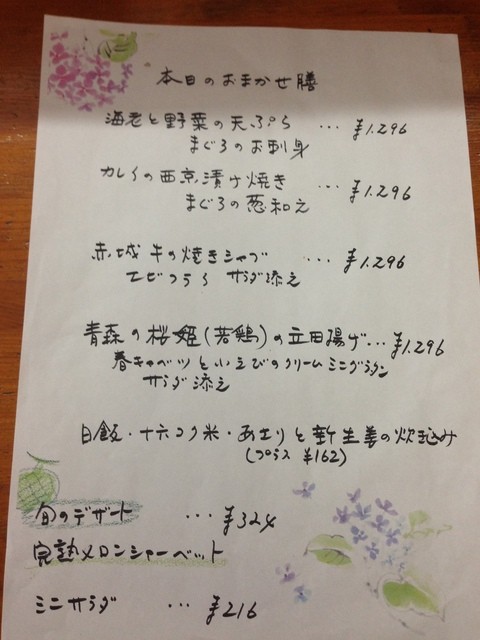 本日のおまかせ膳
海老と野菜の天ぷら … ¥1,296
まぐろのお刺身
カレイの西京漬け焼き … ¥1,296
まぐろの葱和え
赤城牛の焼きシャブ … ¥1,296
エビフライ サラダ添え
青森の桜姫(若鶏)の立田揚げ… ¥1,296
春キャベツと小えびのクリームミニグラタン
サラダ添え
白飯・十六コク米・あさりと新生姜の炊き込み
(プラス ¥162)
旬のデザート … ¥324
完熟メロンシャーベット
ミニサラダ … ¥216